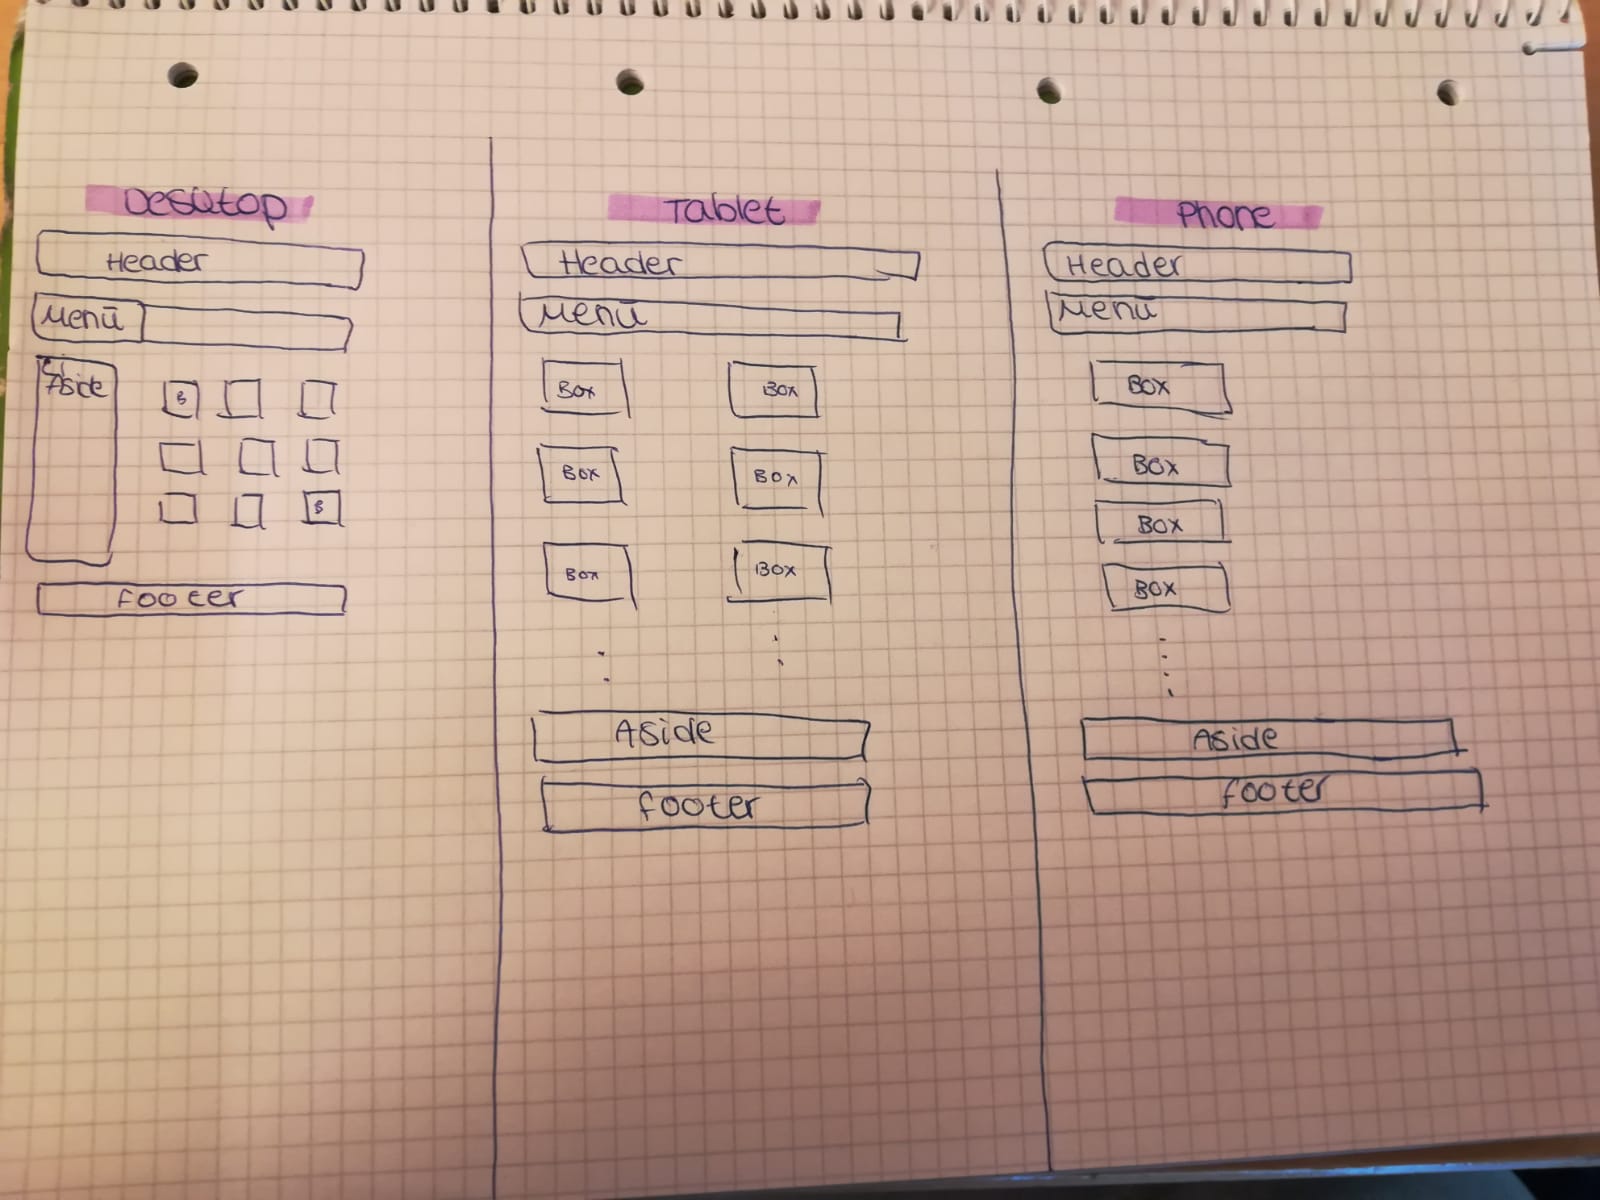 Desktop
Header
Menü
Aside
B
B
Footer
Tablet
Header
Menü
Box
Box
Box
Box
Box
Box
Aside
Footer
Phone
Header
Menü
Box
Box
Box
Box
Aside
Footer